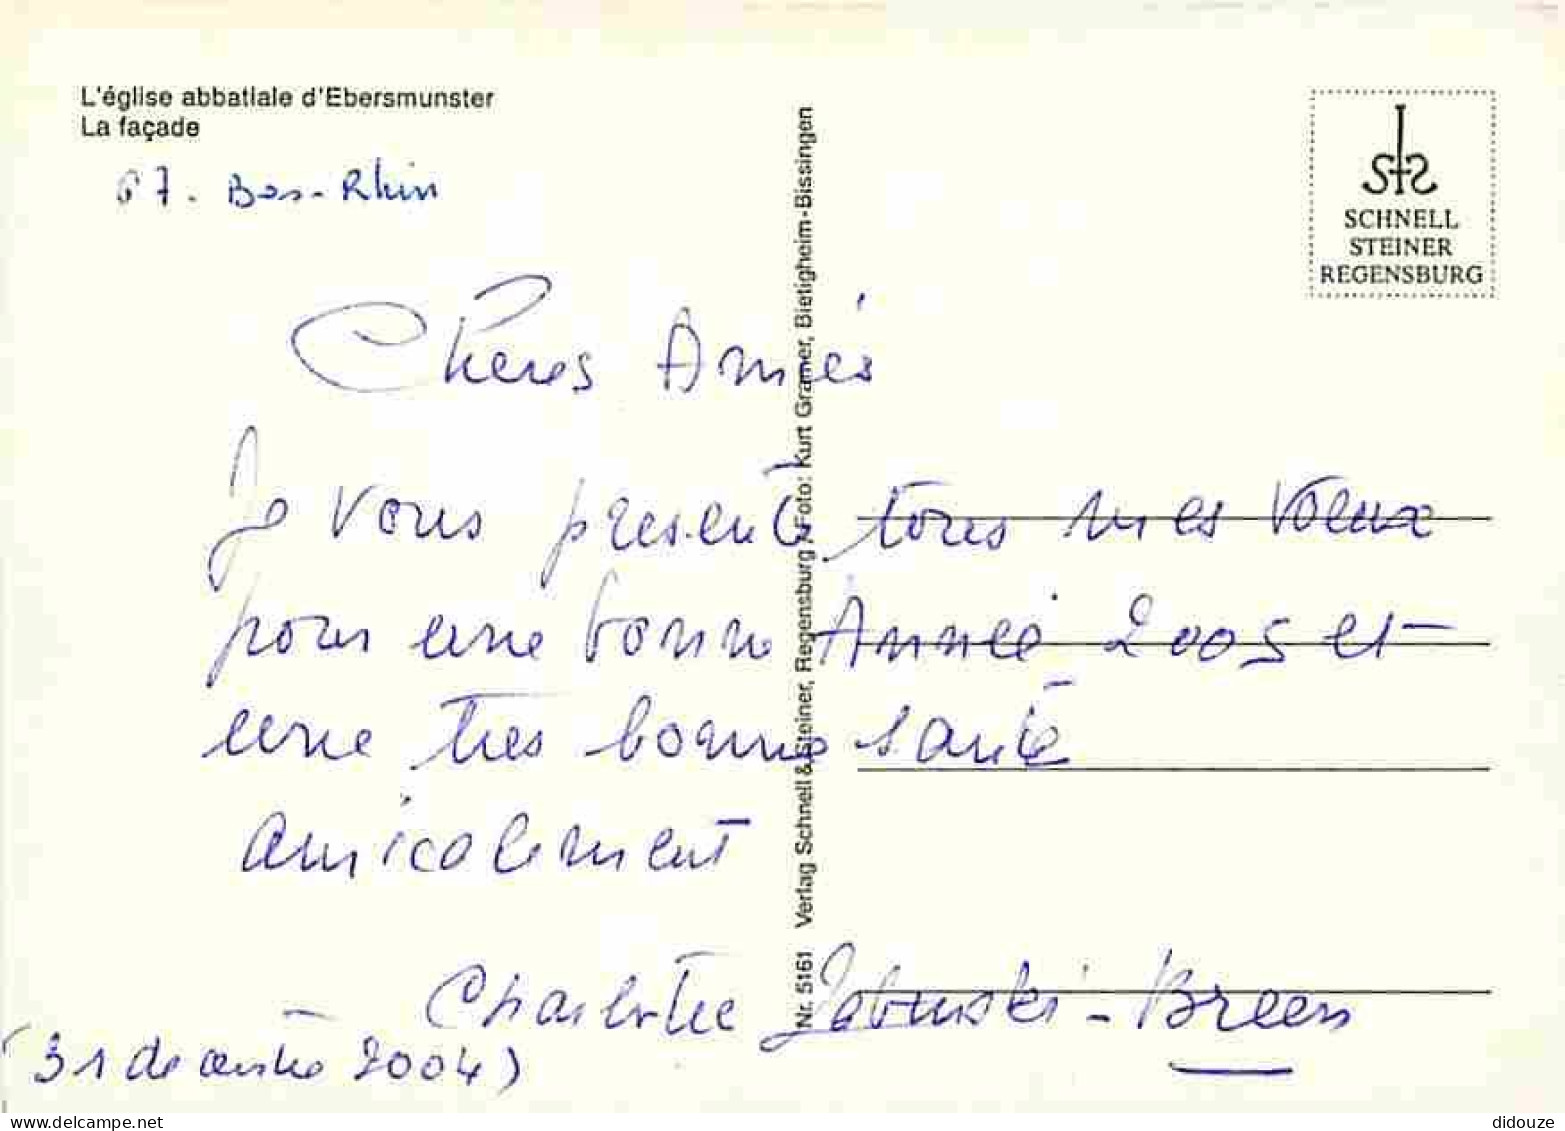 L'église abbatiale d'Ebersmunster
La façade
67. Bas-Rhin
SCHNELL
STEINER
REGENSBURG
Chères Amies
Je vous présente tous mes voeux
pour une bonne Année 2005 et
une très bonne santé
amicalement
Charlotte - Breen
(31 décembre 2004)
Nr. 5161 Verlag Schnell & Steiner, Regensburg / Foto: Kurt Gramer, Bietigheim-Bissingen
delcampe.net
didouze